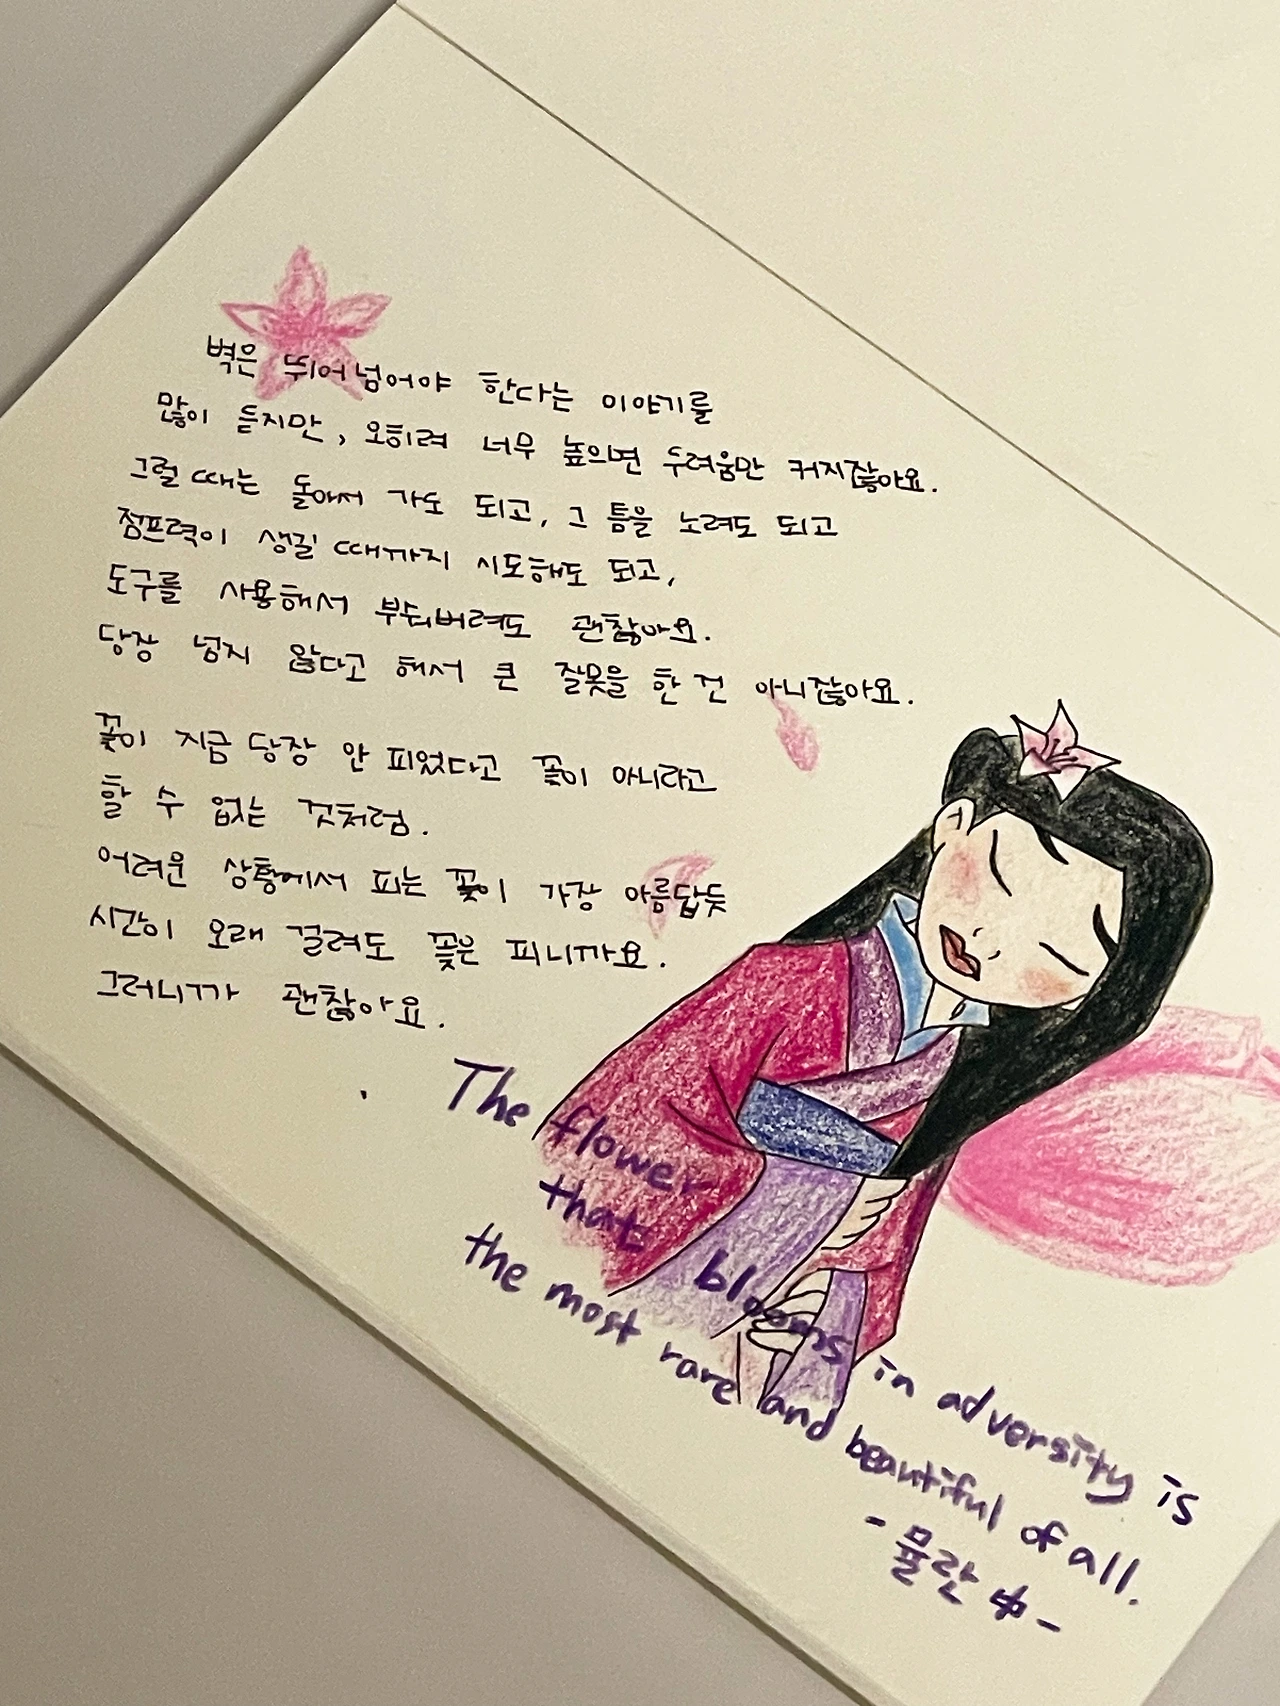 벽은 뛰어넘어야 한다는 이야기를
많이 듣지만, 오히려 너무 높으면 두려움만 커지잖아요.
그럴 때는 돌아서 가도 되고, 그 틈을 노려도 되고
점프력이 생길 때까지 시도해도 되고,
도구를 사용해서 부숴버려도 괜찮아요.
당장 넘지 않다고 해서 큰 잘못을 한 건 아니잖아요.
꽃이 지금 당장 안 피었다고 꽃이 아니라고
할 수 없는 것처럼.
어려운 상황에서 피는 꽃이 가장 아름답듯
시간이 오래 걸려도 꽃은 피니까요.
그러니까 괜찮아요.
The flower
that blooms in adversity is
the most rare and beautiful of all.
-뮬란 中-